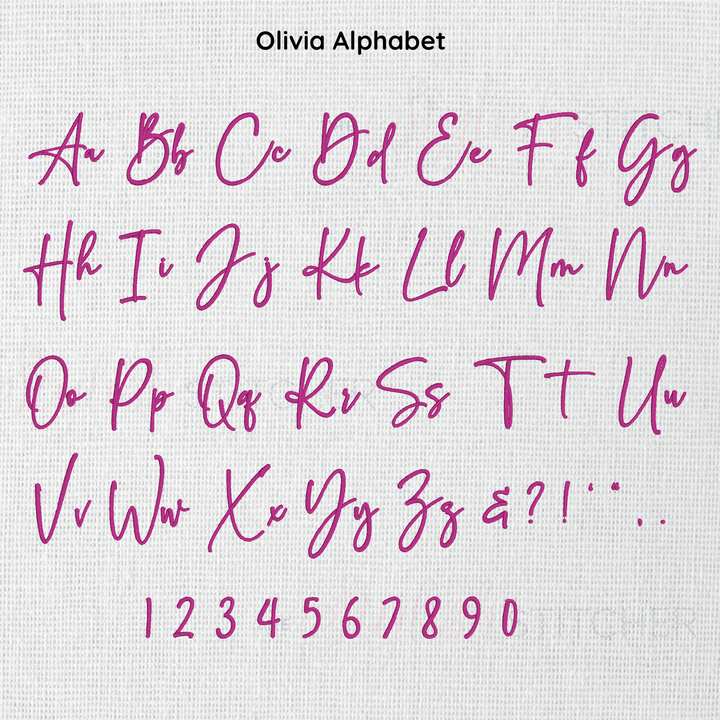 Olivia Alphabet
Aa Bb Cc Dd Ee Ff Gg
Hh Ii Jj Kk Ll Mm Nn
Oo Pp Qq Rr Ss Tt Uu
Vv Ww Xx Yy Zz &?!'".,
1234567890